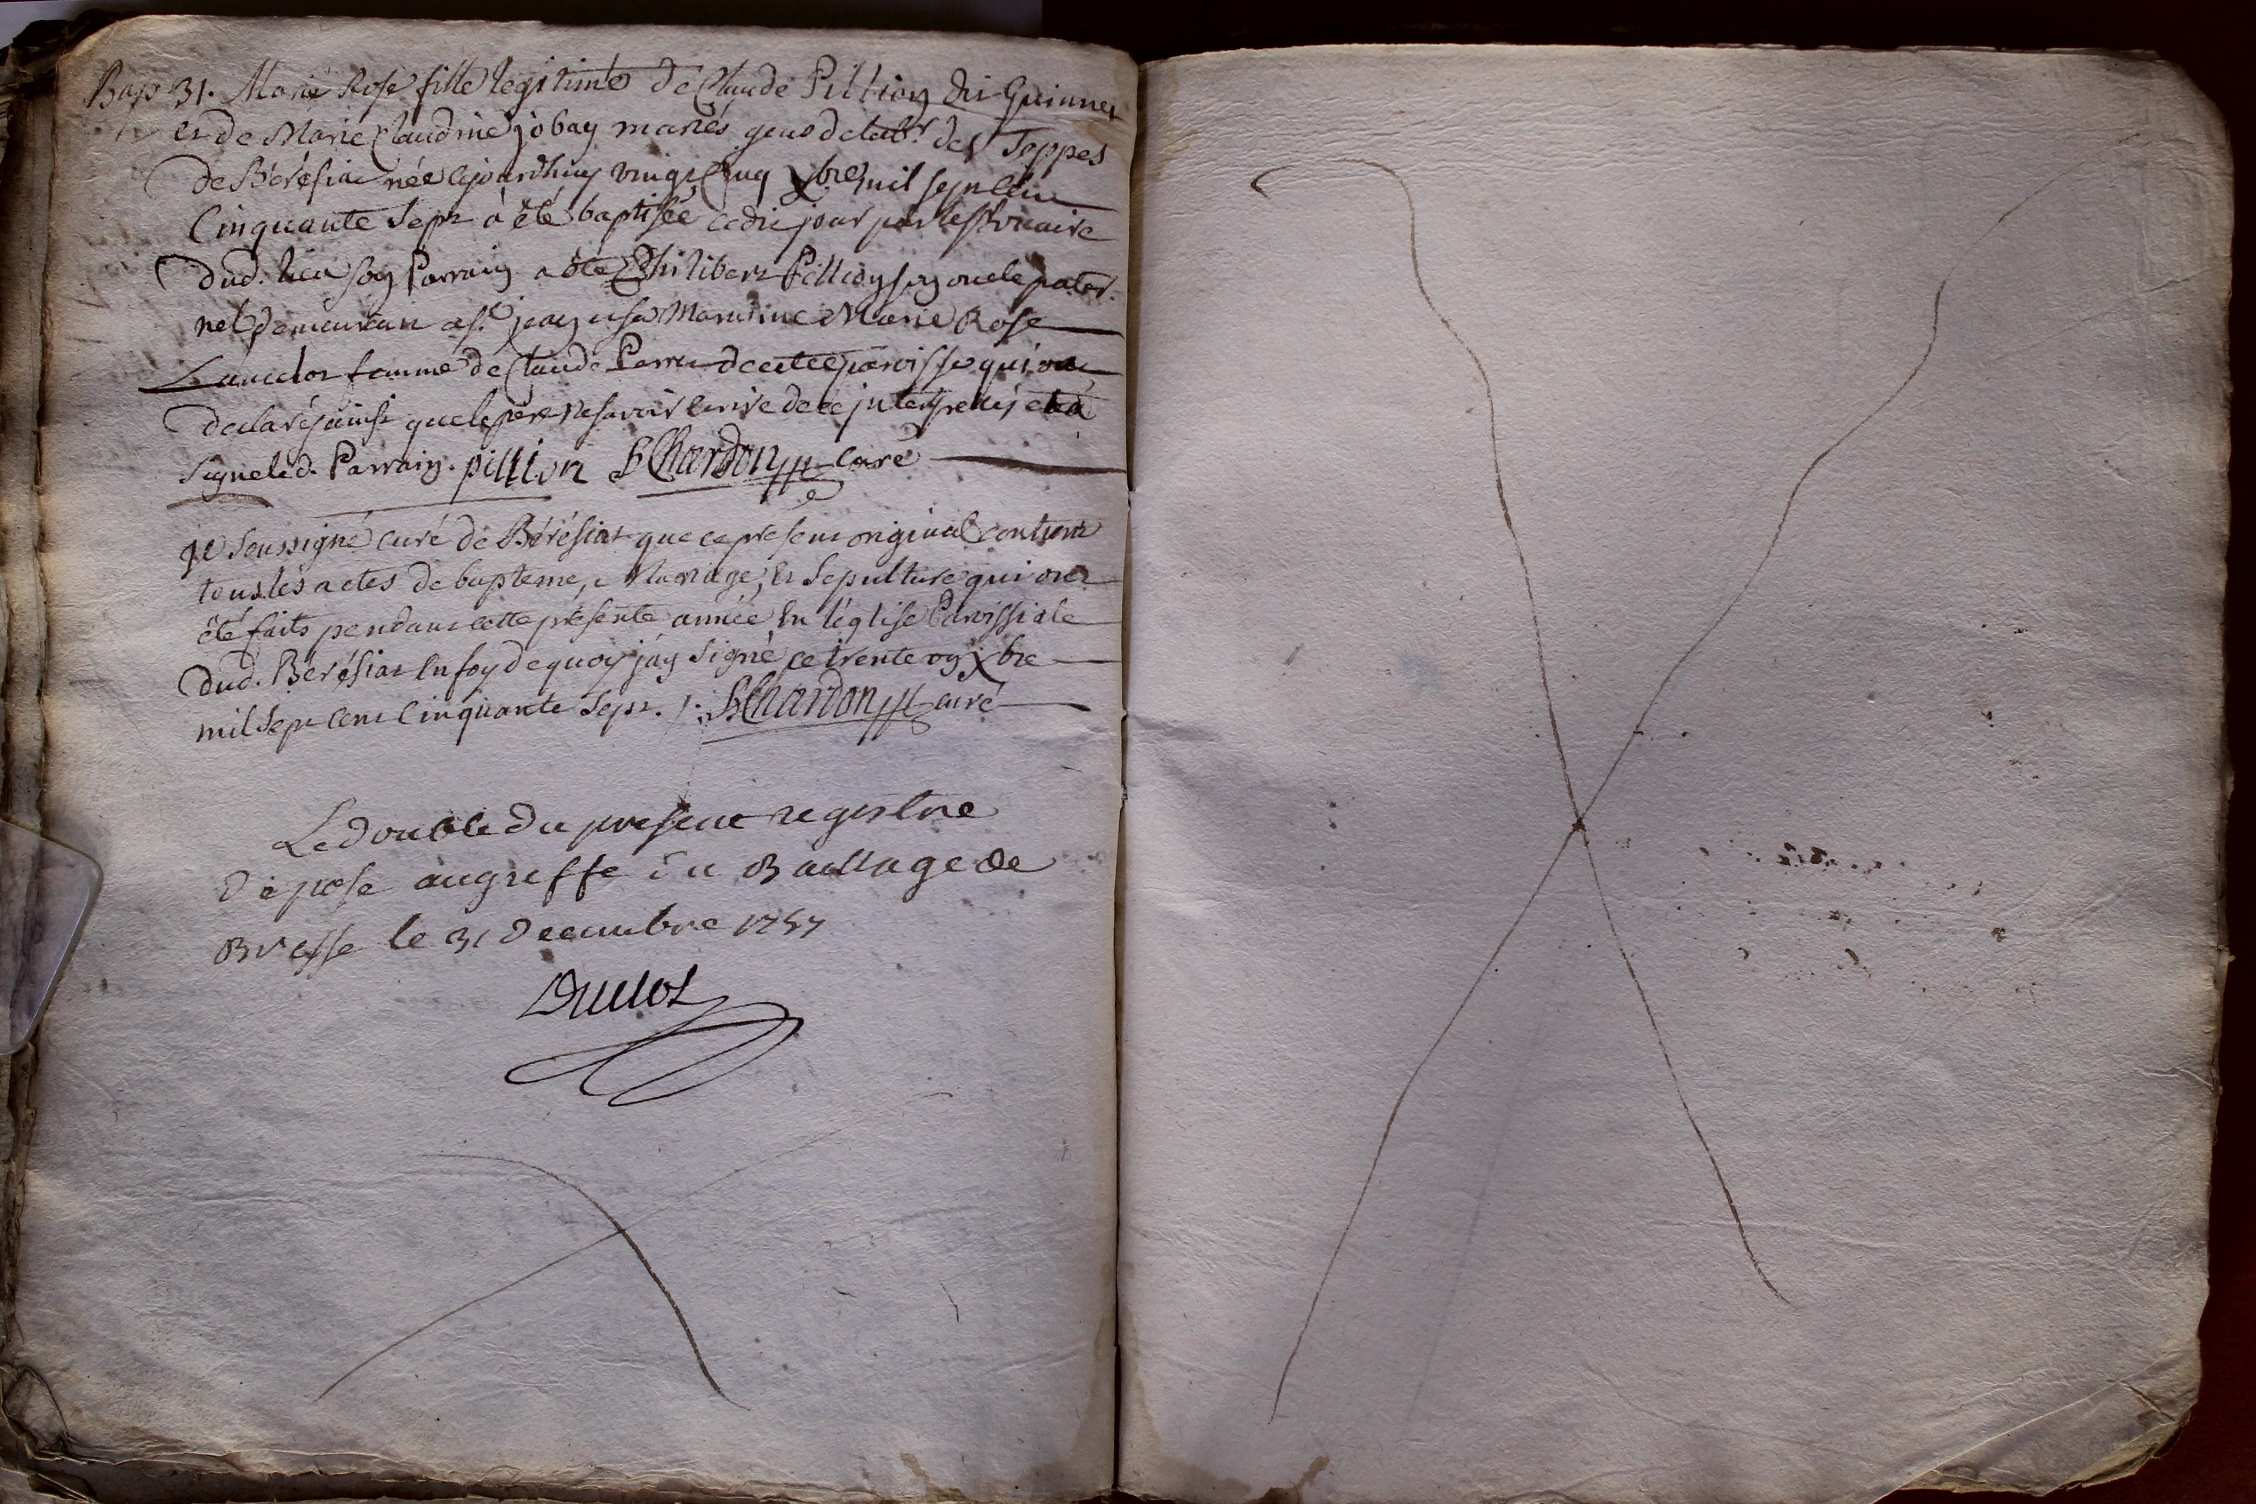 Bap 31. Marie Rose fille legitime de Claude Pillion dit Guinnet
et de Marie Claudine jobay mariés gens de labr. des Teppes
de Bérésiat née cejourdhuy vingt Cinq xbre mil sept Cen
Cinquante Sept à été baptisée cedit jour par le vicaire
dud. lieu son Parrain a été Philibert Pillion son oncle pater-
nel demeurant a st. jean et sa Marraine Marie Rose
femme de Claude Perret de cette paroisse qui ont
declaré ainsi que le père ne savoir ecrire de ce interpellés et a
signe led. Parrain. pillion Chardon curé
je soussigné curé de Bérésiat que ce present original contient
tous les actes de bapteme, Mariage, et Sepulture qui ont
été faits pendant cette présente année en l'église Paroissiale
dud. Bérésiat en foy de quoy j'ay signé ce trente un xbre
mil sept cent Cinquante Sept. Chardon curé
Le double du present registre
déposé au greffe du Baillage de
Bresse le 31 Decembre 1757
Duclos